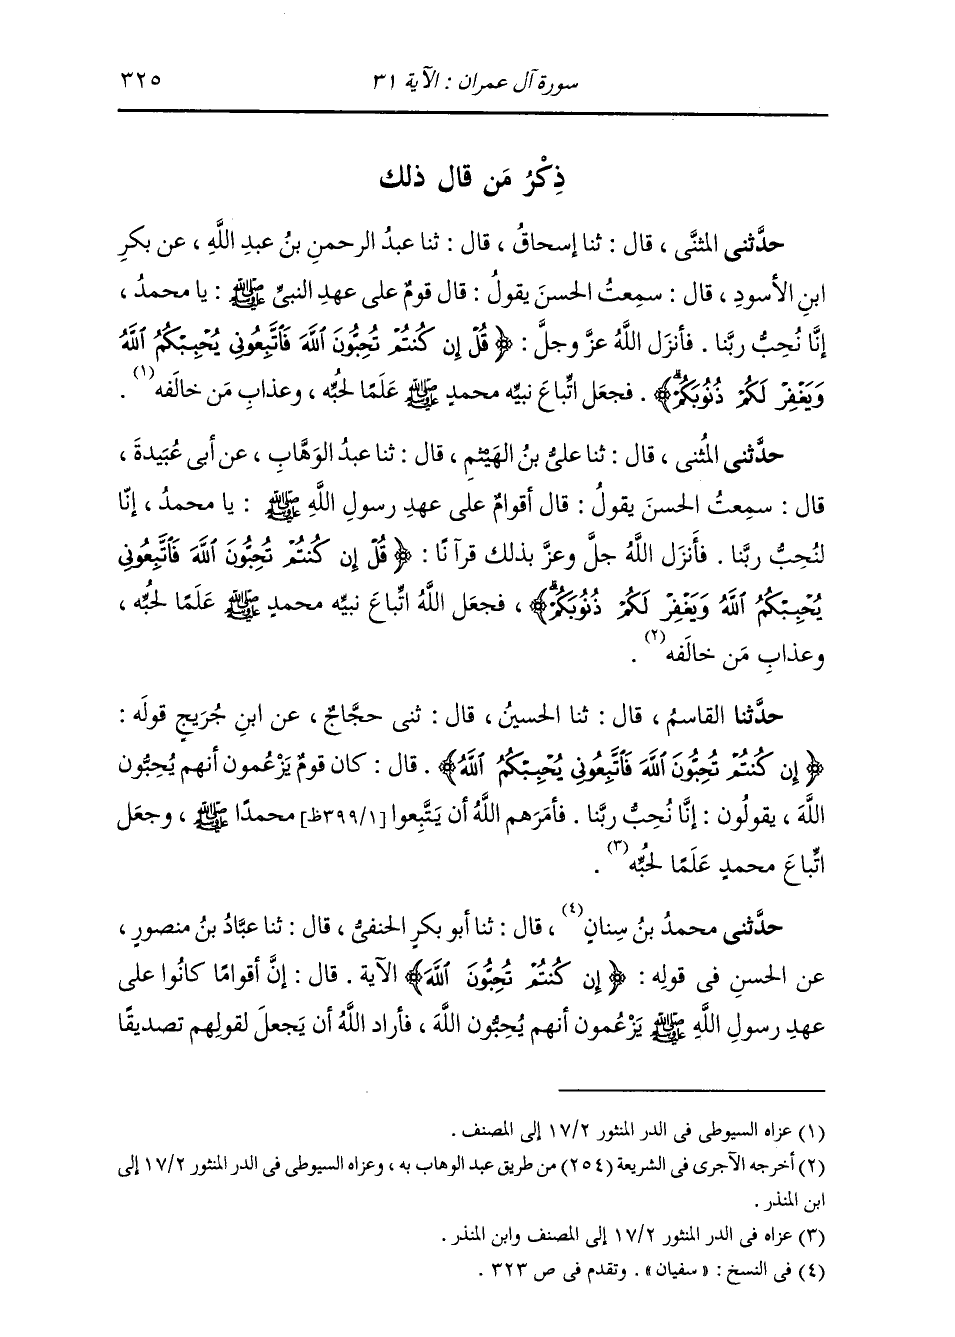 سورة آل عمران : الآية ٣١
٣٢٥
ذِكْرُ مَن قال ذلك
حدَّثني المثنَّى ، قال : ثنا إسحاقُ ، قال : ثنا عبدُ الرحمنِ بنُ عبدِ اللَّهِ ، عن بكرِ
ابنِ الأسودِ ، قال : سمِعتُ الحسنَ يقولُ : قال قومٌ على عهدِ النبيِّ ﷺ : يا محمدُ ،
إنَّا نُحِبُّ ربَّنا . فأنزَل اللَّهُ عزَّ وجلَّ : ﴿ قُلْ إِن كُنتُمْ تُحِبُّونَ ٱللَّهَ فَٱتَّبِعُونِي يُحْبِبْكُمُ ٱللَّهُ
وَيَغْفِرْ لَكُمْ ذُنُوبَكُمْۗ ﴾ . فجعَل اتِّباعَ نبيِّه محمدٍ ﷺ عَلَمًا لحُبِّه ، وعذابِ مَن خالَفه(١) .
حدَّثني المُثنى ، قال : ثنا عليُّ بنُ الهَيْثمِ ، قال : ثنا عبدُ الوَهَّابِ ، عن أبى عُبَيدةَ ،
قال : سمِعتُ الحسنَ يقولُ : قال أقوامٌ على عهدِ رسولِ اللَّهِ ﷺ : يا محمدُ ، إنّا
لنُحِبُّ ربَّنا . فأَنزَل اللَّهُ جلَّ وعزَّ بذلك قرآنًا : ﴿ قُلْ إِن كُنتُمْ تُحِبُّونَ ٱللَّهَ فَٱتَّبِعُونِي
يُحْبِبْكُمُ ٱللَّهُ وَيَغْفِرْ لَكُمْ ذُنُوبَكُمْۗ ﴾ ، فجعَل اللَّهُ اتِّباعَ نبيِّه محمدٍ ﷺ عَلَمًا لحُبِّه ،
وعذابِ مَن خالَفه(٢) .
حدَّثنا القاسمُ ، قال : ثنا الحسينُ ، قال : ثنى حجَّاجٌ ، عن ابنِ جُرَيجٍ قولَه :
﴿ إِن كُنتُمْ تُحِبُّونَ ٱللَّهَ فَٱتَّبِعُونِي يُحْبِبْكُمُ ٱللَّهُ ﴾ . قال : كان قومٌ يَزْعُمون أنهم يُحِبُّون
اللَّهَ ، يقولُون : إنَّا نُحِبُّ ربَّنا . فأمَرَهم اللَّهُ أن يَتَّبِعوا [٣٩٩/١ظ] محمدًا ﷺ ، وجعَل
اتِّباعَ محمدٍ عَلَمًا لحُبِّه(٣) .
حدَّثني محمدُ بنُ سِنانٍ(٤) ، قال : ثنا أبو بكرٍ الحنفيُّ ، قال : ثنا عبَّادُ بنُ منصورٍ ،
عن الحسنِ فى قولِه : ﴿ إِن كُنتُمْ تُحِبُّونَ ٱللَّهَ ﴾ الآية . قال : إنَّ أقوامًا كانُوا على
عهدِ رسولِ اللَّهِ ﷺ يَزْعُمون أنهم يُحِبُّون اللَّهَ ، فأراد اللَّهُ أن يَجعلَ لقولِهم تصديقًا
(١) عزاه السيوطى فى الدر المنثور ١٧/٢ إلى المصنف .
(٢) أخرجه الآجرى فى الشريعة (٢٥٤) من طريق عبد الوهاب به ، وعزاه السيوطى فى الدر المنثور ١٧/٢ إلى
ابن المنذر .
(٣) عزاه فى الدر المنثور ١٧/٢ إلى المصنف وابن المنذر .
(٤) فى النسخ : « سفيان » . وتقدم فى ص ٣٢٣ .